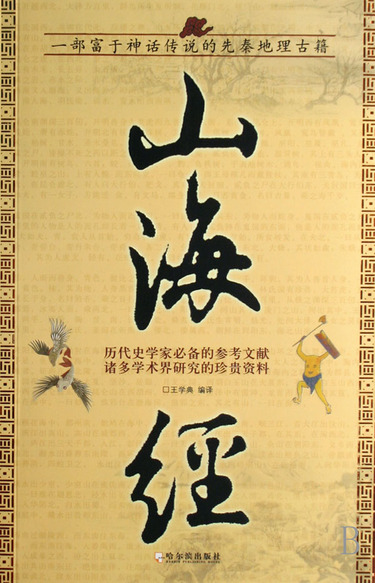 一部富于神话传说的先秦地理古籍
山海經
历代史学家必备的参考文献
诸多学术界研究的珍贵资料
□王学典 编译
哈尔滨出版社
HARBIN PUBLISHING HOUSE
B